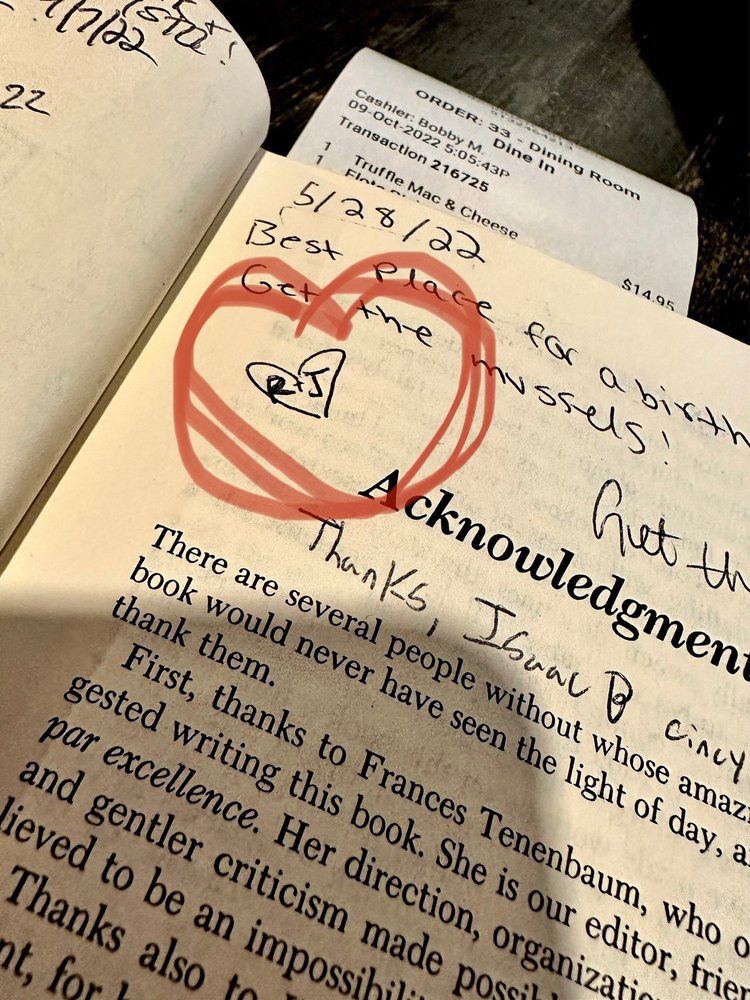 7/7/22
22
ORDER: 33 - Dining Room
Dine In
Cashier: Bobby M.
09-Oct-2022 5:05:43P
Transaction 216725
1 Truffle Mac & Cheese
1
$14.95
5/28/22
Best place for a birth
Get the mussels!
R+J
Get th
Acknowledgment
Thanks, Isaac B cincy
There are several people without whose amazi
book would never have seen the light of day, a
thank them.
First, thanks to Frances Tenenbaum, who o
gested writing this book. She is our editor, frien
par excellence. Her direction, organizatio
and gentler criticism made possib
lieved to be an impossibili
Thanks also to
nt, for h